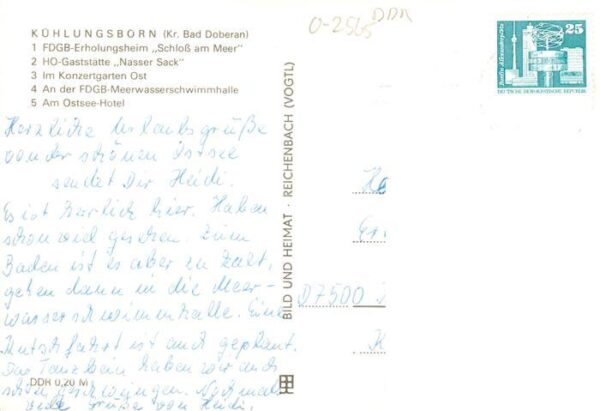 KÜHLUNGSBORN (Kr. Bad Doberan)
1 FDGB-Erholungsheim „Schloß am Meer"
2 HO-Gaststätte „Nasser Sack"
3 Im Konzertgarten Ost
4 An der FDGB-Meerwasserschwimmhalle
5 Am Ostsee-Hotel
Herzliche Urlaubsgrüße
von der schönen Ostsee
sendet Dir Heidi.
Es ist herrlich hier. Haben
schon viel gesehen. Zum
Baden ist es aber zu kalt,
gehen dann in die Meer-
wasserschwimmhalle. Eine
Kutschfahrt ist auch geplant.
Das Tanzbein haben wir auch
schon geschwungen. Nochmals
viele Grüße von Heidi.
DDR 0,20 M
BILD UND HEIMAT · REICHENBACH (VOGTL)
0-2565
DDR
25
Berlin, Alexanderplatz
DEUTSCHE DEMOKRATISCHE REPUBLIK
D7500